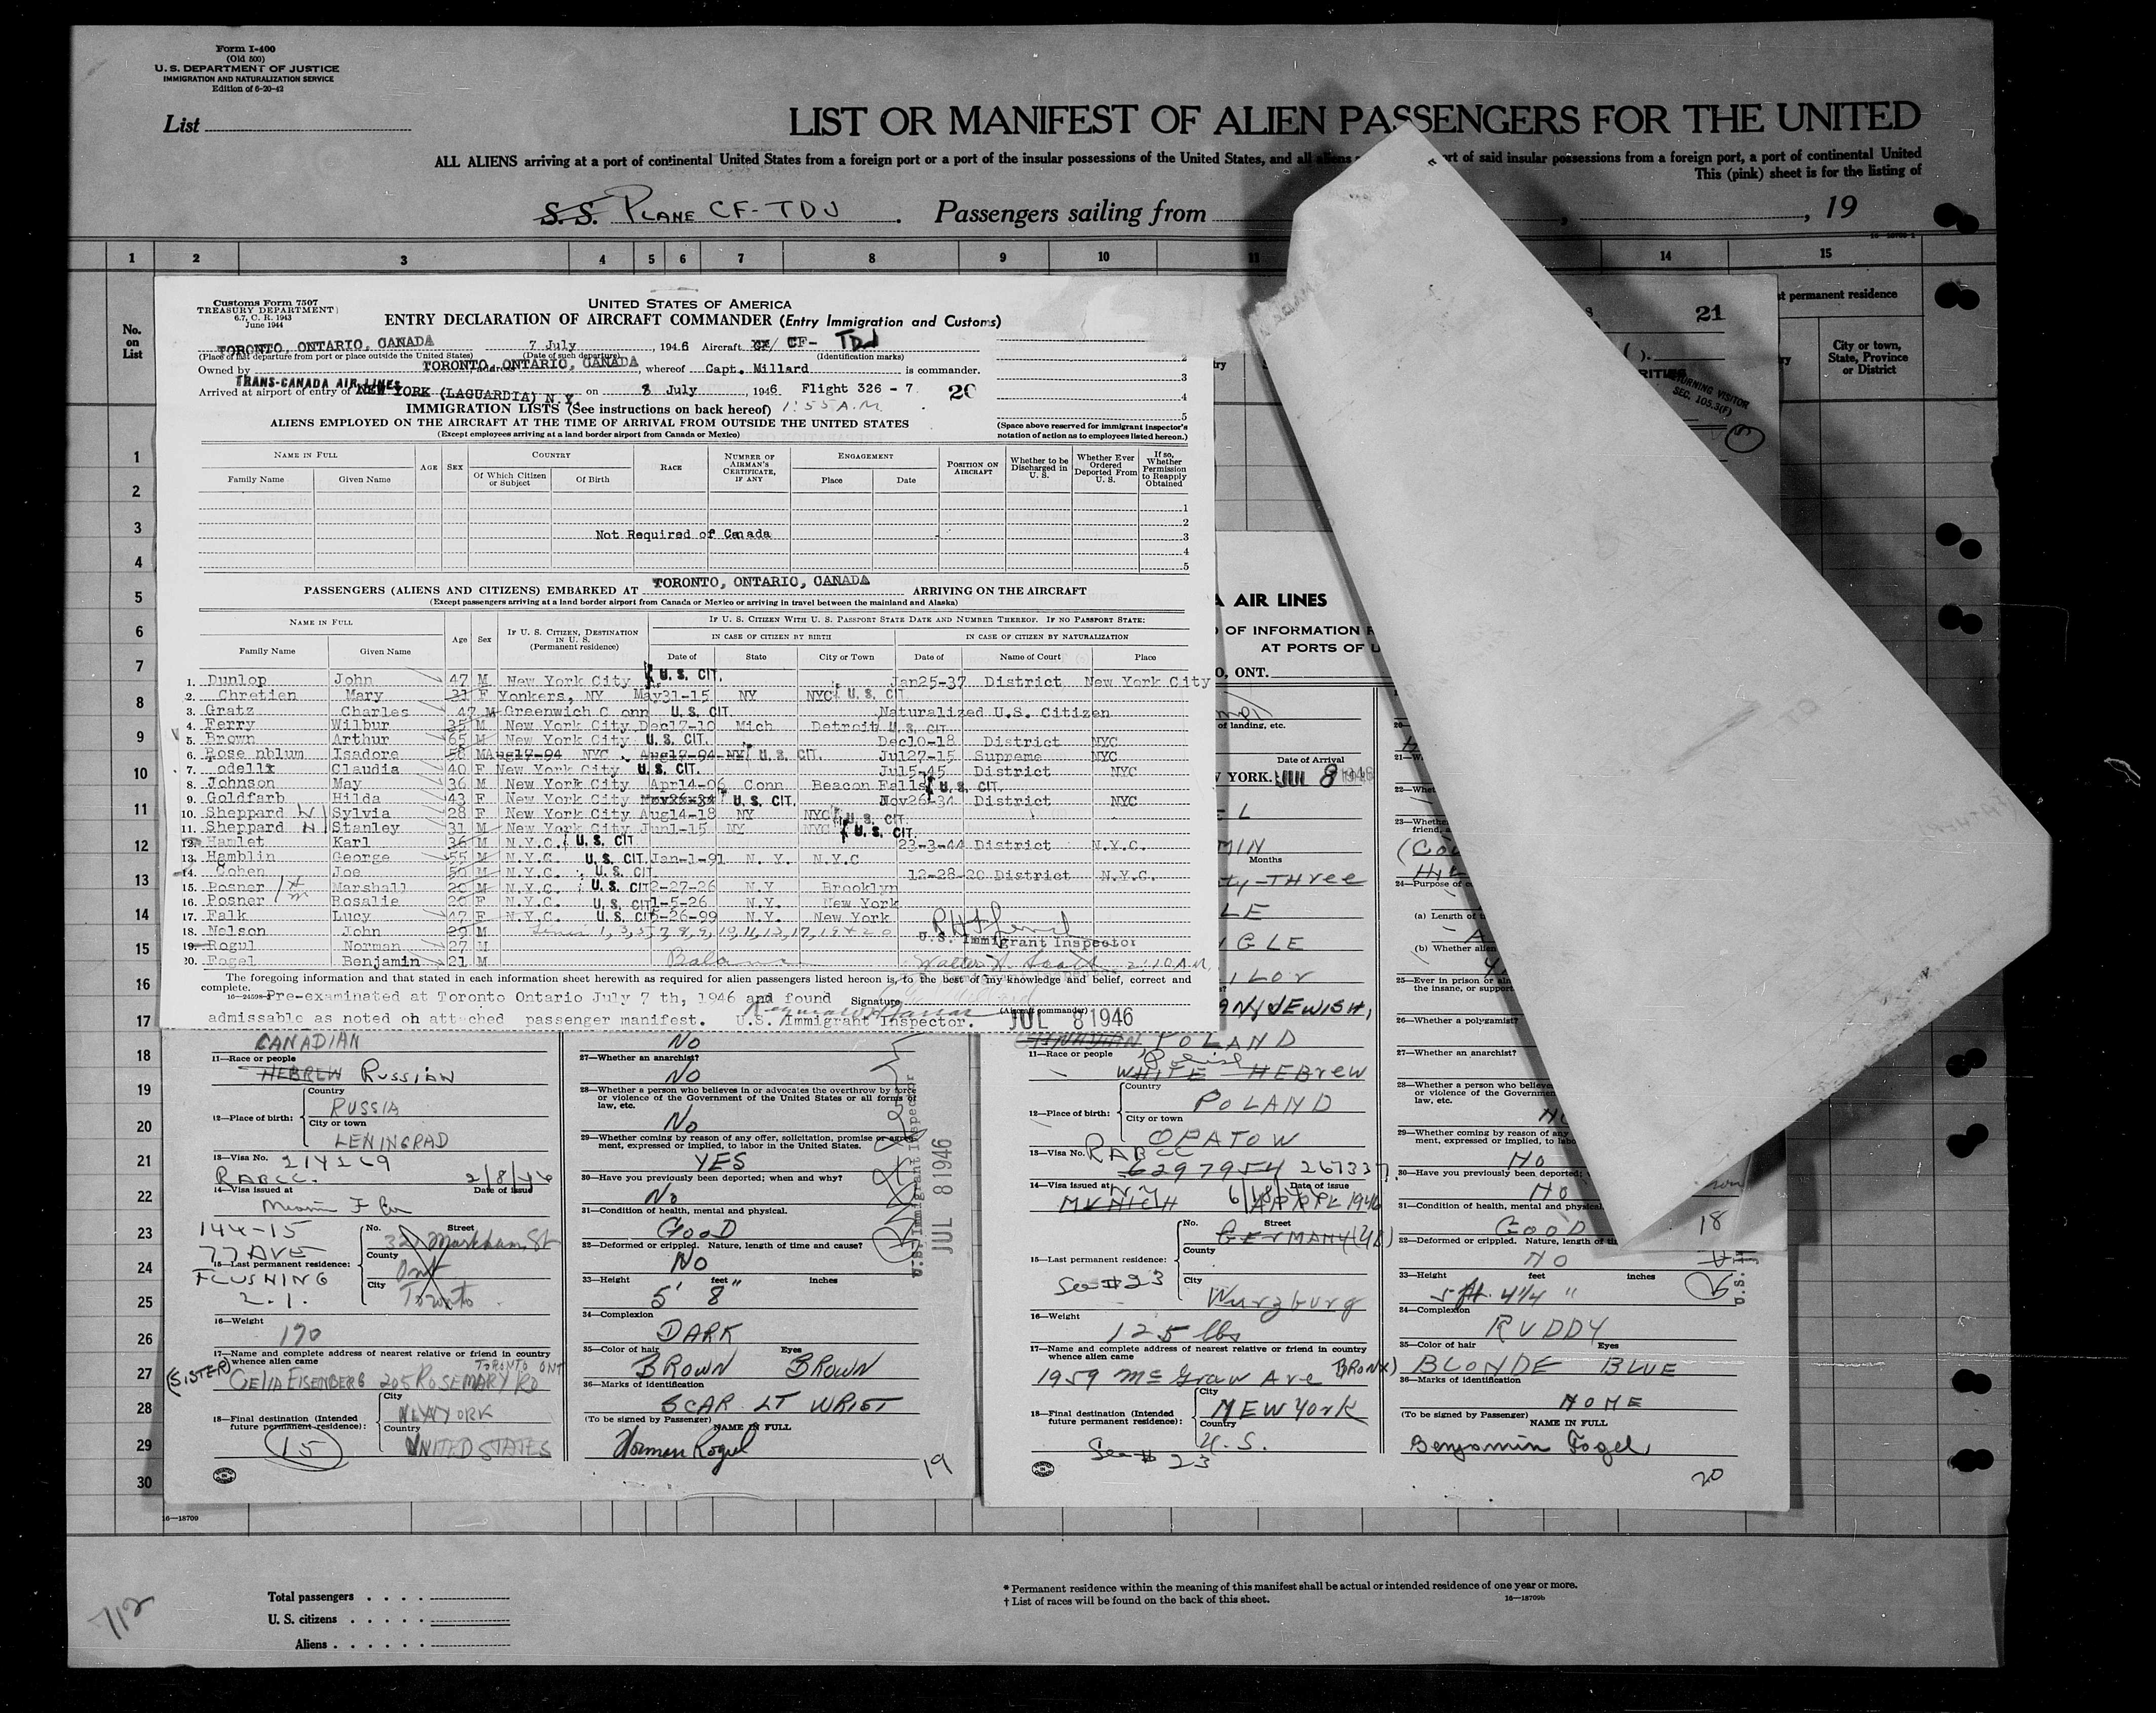 Form I-400
(Old 500)
U. S. DEPARTMENT OF JUSTICE
IMMIGRATION AND NATURALIZATION SERVICE
Edition of 6-20-42
List
LIST OR MANIFEST OF ALIEN PASSENGERS FOR THE UNITED
ALL ALIENS arriving at a port of continental United States from a foreign port or a port of the insular possessions of the United States, and all aliens rt of said insular possessions from a foreign port, a port of continental United
This (pink) sheet is for the listing of
S.S. PLANE CF-TDJ . Passengers sailing from , , 19
1 2 3 4 5 6 7 8 9 10 11 14 15
No. on List
t permanent residence
City or town, State, Province or District
21
RETURNING VISITOR
SEC. 105.3(F)
Customs Form 7507
TREASURY DEPARTMENT
6.7, C. R. 1943
June 1944
UNITED STATES OF AMERICA
ENTRY DECLARATION OF AIRCRAFT COMMANDER (Entry Immigration and Customs)
TORONTO, ONTARIO, CANADA 7 July , 1946 Aircraft CF/ CF- TDJ
(Place of last departure from port or place outside the United States) (Date of such departure) (Identification marks)
Owned by TRANS-CANADA AIR LINES TORONTO, ONTARIO, CANADA , whereof Capt. Millard is commander.
Arrived at airport of entry of NEW YORK (LAGUARDIA) N.Y. on 8 July , 1946 Flight 326 - 7 20
IMMIGRATION LISTS (See instructions on back hereof) 1:55 A.M.
ALIENS EMPLOYED ON THE AIRCRAFT AT THE TIME OF ARRIVAL FROM OUTSIDE THE UNITED STATES
(Except employees arriving at a land border airport from Canada or Mexico)
2
3
4
5
(Space above reserved for immigrant inspector's notation of action as to employees listed hereon.)
NAME IN FULL AGE SEX COUNTRY RACE NUMBER OF AIRMAN'S CERTIFICATE, IF ANY ENGAGEMENT POSITION ON AIRCRAFT Whether to be Discharged in U. S. Whether Ever Ordered Deported From U. S. If so, Whether Permission to Reapply Obtained
Family Name Given Name Of Which Citizen or Subject Of Birth Place Date
1
2
Not Required of Canada 3
4
5
PASSENGERS (ALIENS AND CITIZENS) EMBARKED AT TORONTO, ONTARIO, CANADA ARRIVING ON THE AIRCRAFT
(Except passengers arriving at a land border airport from Canada or Mexico or arriving in travel between the mainland and Alaska)
NAME IN FULL Age Sex IF U. S. CITIZEN, DESTINATION IN U. S. (Permanent residence) IF U. S. CITIZEN WITH U. S. PASSPORT STATE DATE AND NUMBER THEREOF. IF NO PASSPORT STATE:
IN CASE OF CITIZEN BY BIRTH IN CASE OF CITIZEN BY NATURALIZATION
Family Name Given Name Date of State City or Town Date of Name of Court Place
1. Dunlop John 47 M New York City U. S. CIT. Jan25-37 District New York City
2. Chretien Mary 31 F Yonkers, NY May31-15 NY NYC U. S. CIT
3. Gratz Charles 47 M Greenwich Conn U. S. CIT. Naturalized U.S. Citizen
4. Ferry Wilbur 35 M New York City Dec17-10 Mich Detroit U. S. CIT.
5. Brown Arthur 65 M New York City U. S. CIT. Dec10-18 District NYC
6. Rose nblum Isadore 58 M Aug17-94 NYC Aug17-94 NY U. S. CIT. Jul27-15 Supreme NYC
7. Claudia 40 F New York City U. S. CIT. Jul5-45 District NYC
8. Johnson May 36 M New York City Apr14-06 Conn Beacon Falls U. S. CIT.
9. Goldfarb Hilda 43 F New York City Nov26-34 U. S. CIT. Nov26-34 District NYC
10. Sheppard W Sylvia 28 F New York City Aug14-18 NY NYC U. S. CIT.
11. Sheppard H Stanley 31 M New York City Jun1-15 NY NYC U. S. CIT.
12. Hamlet Karl 36 M N.Y.C. U. S. CIT 23-3-44 District N.Y.C.
13. Hamblin George 55 M N.Y.C. U. S. CIT. Jan-1-91 N. Y. N.Y.C
14. Cohen Joe 50 M N.Y.C. U. S. CIT 12-28-20 District N.Y.C.
15. Posner Marshall 20 M N.Y.C. U. S. CIT 2-27-26 N.Y Brooklyn
16. Posner Rosalie 20 F N.Y.C. U. S. CIT 1-5-26 N.Y. New York
17. Falk Lucy 47 F N.Y.C. U. S. CIT 5-26-99 N.Y. New York
18. Nelson John 29 M
U.S. Immigrant Inspector
19. Rogul Norman 27 M
20. Fogel Benjamin 21 M Walter 2:10 A.M.
The foregoing information and that stated in each information sheet herewith as required for alien passengers listed hereon is, to the best of my knowledge and belief, correct and complete.
16-24598-1 Pre-examinated at Toronto Ontario July 7 th, 1946 and found Signature
(Aircraft commander)
admissable as noted on attached passenger manifest. U.S. Immigrant Inspector. JUL 8 1946
1
2
3
4
5
6
7
8
9
10
11
12
13
14
15
16
17
18
19
20
21
22
23
24
25
26
27
28
29
30
CANADIAN
11—Race or people
HEBREW RUSSIAN
12—Place of birth:
Country
RUSSIA
City or town
LENINGRAD
13—Visa No. 214269
RABCC. 2/8/46
14—Visa issued at Date of issue
144-15
77 AVE
FLUSHING
2.1.
15—Last permanent residence:
No. Street
321 Markham St
County
Ont
City
Toronto
16—Weight
170
17—Name and complete address of nearest relative or friend in country whence alien came
(SISTER) CELIA EISENBERG 205 ROSEMARY RD TORONTO ONT
18—Final destination (Intended future permanent residence):
City
NEW YORK
Country
UNITED STATES
15
No
27—Whether an anarchist?
No
28—Whether a person who believes in or advocates the overthrow by force or violence of the Government of the United States or all forms of law, etc.
No
29—Whether coming by reason of any offer, solicitation, promise or agreement, expressed or implied, to labor in the United States.
YES
30—Have you previously been deported; when and why?
No
31—Condition of health, mental and physical.
GOOD
32—Deformed or crippled. Nature, length of time and cause?
No
33—Height feet inches
5' 8"
34—Complexion
DARK
35—Color of hair Eyes
BROWN BROWN
36—Marks of identification
SCAR LT WRIST
(To be signed by Passenger) NAME IN FULL
Norman Rogul
19
U.S. Immigrant Inspector
JUL 8 1946
A AIR LINES
OF INFORMATION
AT PORTS OF U
O, ONT.
of landing, etc.
Date of Arrival
YORK. JUL 8 1946
EL
MIN
Months
ty-Three
LE
GLE
ILOR
JEWISH,
POLAND
11—Race or people
Polish
WHITE HEBREW
12—Place of birth:
Country
POLAND
City or town
OPATOW
13—Visa No. RABCC
6297954 267337
14—Visa issued at N.Y. Date of issue
MUNICH APRIL 1946
15—Last permanent residence:
No. Street
GERMANY
County
See #23
City
Wurzburg
16—Weight
125 lbs
17—Name and complete address of nearest relative or friend in country whence alien came
1959 McGraw Ave BRONX)
18—Final destination (Intended future permanent residence):
City
NEW YORK
Country
U.S.
See # 23
24—Purpose of
(a) Length of
(b) Whether alien
25—Ever in prison or
the insane, or support
26—Whether a polygamist?
27—Whether an anarchist?
28—Whether a person who believe
or violence of the Governmen
law, etc.
29—Whether coming by reason of any
ment, expressed or implied, to labo
NO
30—Have you previously been deported;
NO
31—Condition of health, mental and physical
GOOD
32—Deformed or crippled. Nature, length of
NO
33—Height feet inches
5 ft. 4 1/4 "
34—Complexion
RUDDY
35—Color of hair Eyes
BLONDE BLUE
36—Marks of identification
NONE
(To be signed by Passenger) NAME IN FULL
Benjamin Fogel
20
18
16—18709
712
Total passengers
U. S. citizens
Aliens
* Permanent residence within the meaning of this manifest shall be actual or intended residence of one year or more.
† List of races will be found on the back of this sheet. 16—18709b